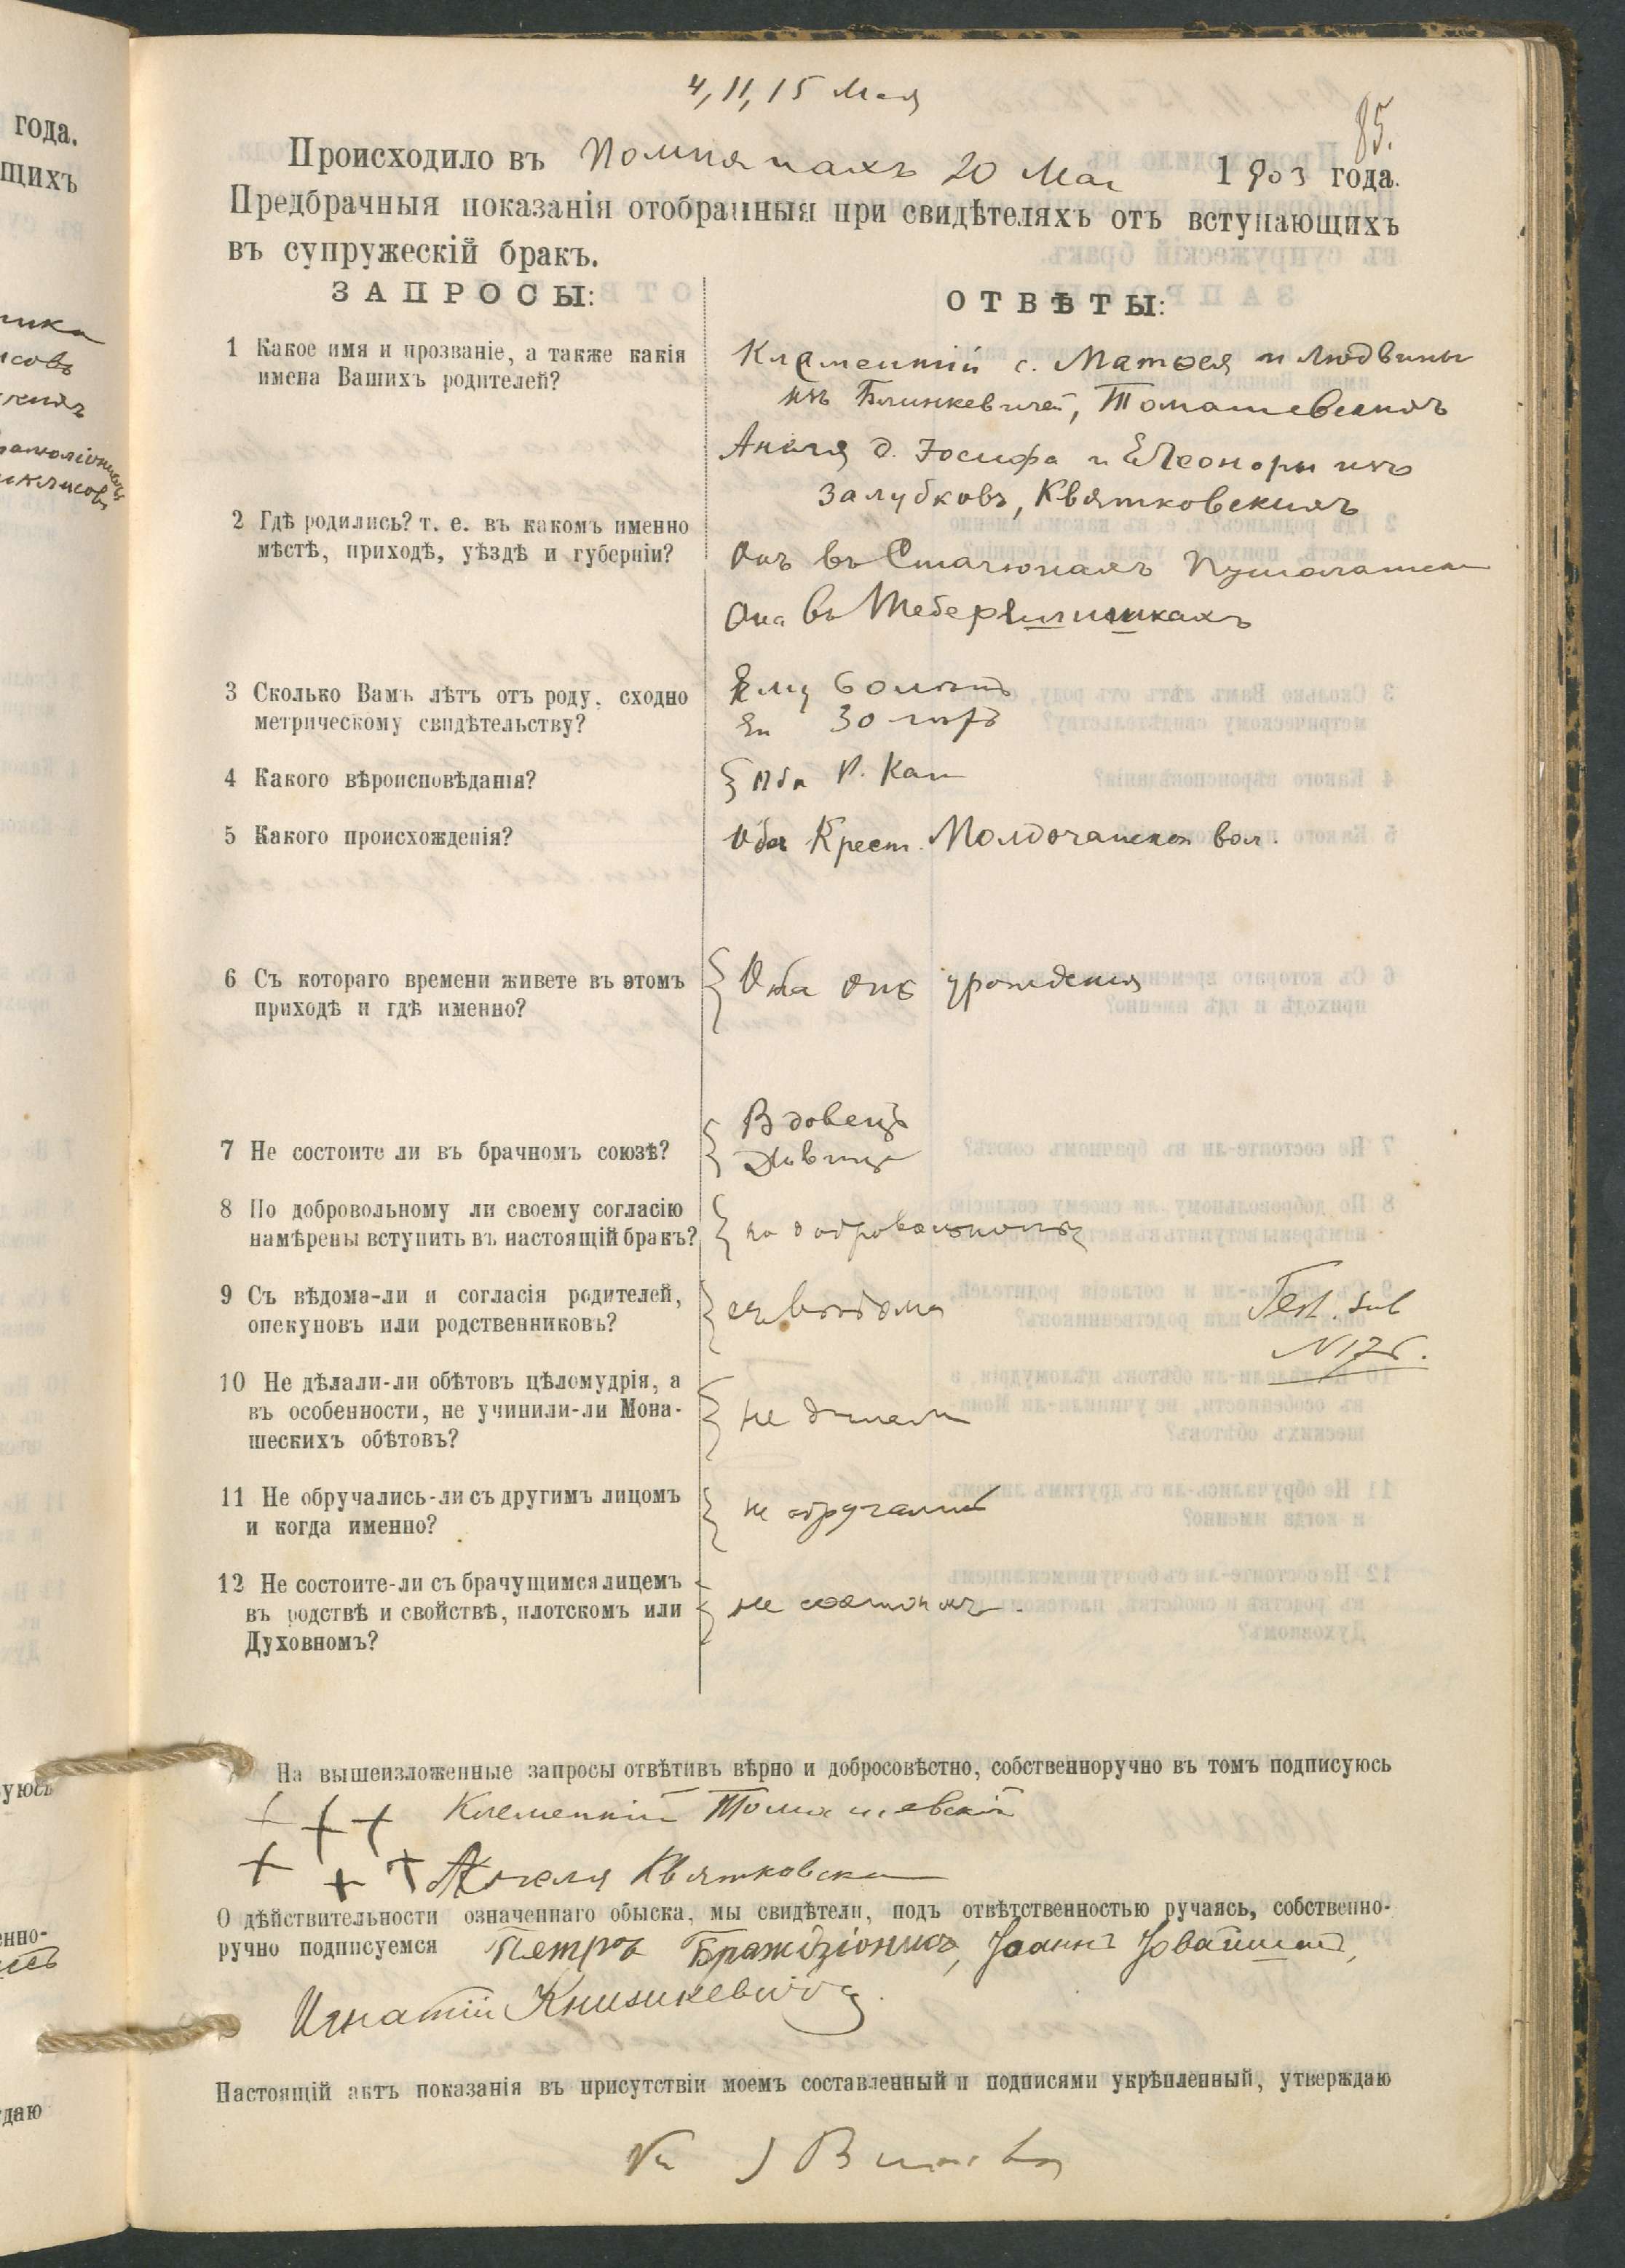 4, 11, 15 Мая
85.
Происходило въ Помпянахъ 20 Мая 1903 года.
Предбрачныя показанія отобранныя при свидѣтеляхъ отъ вступающихъ
въ супружескій бракъ.
ЗАПРОСЫ:
ОТВѢТЫ:
1 Какое имя и прозваніе, а также какія
имена Вашихъ родителей?
Клементій с. Матѳея и Людвины
изъ Блинкевичей, Томашевскихъ
Анеля д. Іосифа и Елеоноры изъ
Залубковъ, Квятковскихъ
2 Гдѣ родились? т. е. въ какомъ именно
мѣстѣ, приходѣ, уѣздѣ и губерніи?
Онъ въ Стачюнахъ
Она въ
3 Сколько Вамъ лѣтъ отъ роду, сходно
метрическому свидѣтельству?
Ему 60 лѣтъ
Ей 30 лѣтъ
4 Какого вѣроисповѣданія?
Оба Р. Кат
5 Какого происхожденія?
Оба Крест. вол.
6 Съ котораго времени живете въ этомъ
приходѣ и гдѣ именно?
Оба отъ урожденія
7 Не состоите ли въ брачномъ союзѣ?
Вдовецъ
Дѣвица
8 По добровольному ли своему согласію
намѣрены вступить въ настоящій бракъ?
по добровольному
9 Съ вѣдома-ли и согласія родителей,
опекуновъ или родственниковъ?
съ вѣдома
Test. sub
N 176.
10 Не дѣлали-ли обѣтовъ цѣломудрія, а
въ особенности, не учинили-ли Мона-
шескихъ обѣтовъ?
не дѣлали
11 Не обручались-ли съ другимъ лицомъ
и когда именно?
не обручались
12 Не состоите-ли съ брачущимся лицемъ
въ родствѣ и свойствѣ, плотскомъ или
Духовномъ?
не состоимъ
На вышеизложенные запросы отвѣтивъ вѣрно и добросовѣстно, собственноручно въ томъ подписуюсь
+ + + Клементій Томашевскій
+ + + Анеля Квятковска
О дѣйствительности означеннаго обыска, мы свидѣтели, подъ отвѣтственностью ручаясь, собственно-
ручно подписуемся Петръ Бражdзіонисъ, Іоаннъ Іовайшатъ,
Игнатій
Настоящій актъ показанія въ присутствіи моемъ составленный и подписями укрѣпленный, утверждаю